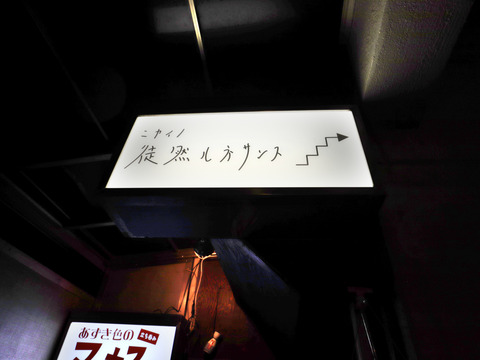 ニカイノ
徒然ルネサンス
あずき色の
立ち呑み